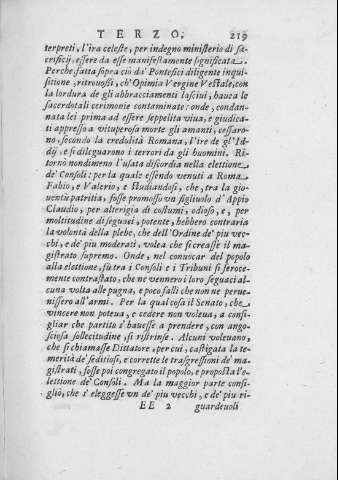 TERZO. 219
terpreti, l'ira celeste, per indegno ministerio di sa-
crificij, essere da esse manifestamente significata.
Perche, fatta sopra ciò da' Pontefici diligente inqui-
sitione, ritrouossi, ch'Opimia Vergine Vestale, con
la lordura de gli abbracciamenti lasciui, hauea le
sacerdotali cerimonie contaminate: onde, condan-
nata lei prima ad essere seppelita viua, e giudica-
ti appresso a vituperosa morte gli amanti, cessaro-
no, secondo la credolità Romana, l'ire de gl'Id-
dij, e si dileguarono i terrori da gli huomini. Ri-
tornò nondimeno l'usata discordia nella elettione
de' Consoli: per la quale essendo venuti a Roma
Fabio, e Valerio, e studiandosi, che, tra la gio-
uentù patritia, fosse promosso vn figliuolo d'Appio
Claudio, per alterigia di costumi, odioso, e, per
moltitudine di seguaci, potente, hebbero contraria
la volontà della plebe, che dell'Ordine de' piu vec-
chi, e de' piu moderati, volea che si creasse il ma-
gistrato supremo. Onde, nel conuocar del popolo
alla elettione, fù tra i Consoli e i Tribuni sì feroce-
mente contrastato, che ne vennero i loro seguaci al-
cuna volta alle pugna, e poco fallì che non ne perue-
nissero all'armi. Per la qual cosa il Senato, che
vincere non poteua, e cedere non voleua, a consi-
gliar che partito s'hauesse a prendere, con ango-
sciosa sollecitudine, si ristrinse. Alcuni voleuano,
che si chiamasse Dittatore, per cui, castigata la te-
merità de' seditiosi, e corrette le trasgressioni de' ma-
gistrati, fosse poi congregato il popolo, e proposta l'e-
lettione de' Consoli. Ma la maggior parte consi-
gliò, che s'eleggesse vn de' piu vecchi, e de' piu ri-
EE 2 guardeuoli